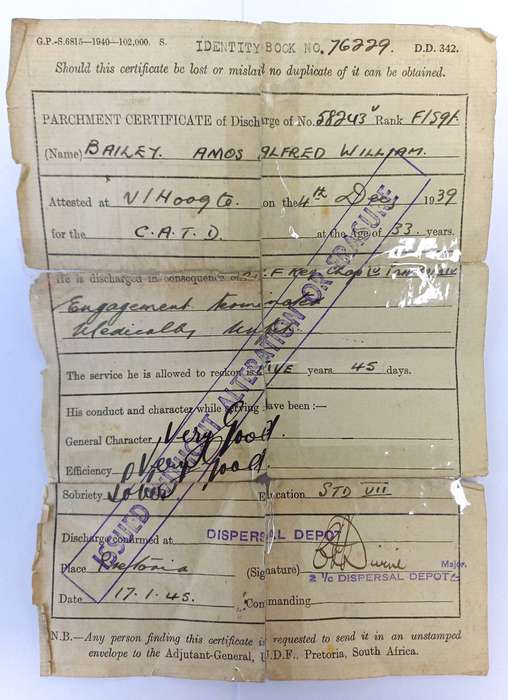 G.P.-S.6815—1940—102,000. S. IDENTITY BOOK NO. 76229. D.D. 342.
Should this certificate be lost or mislaid no duplicate of it can be obtained.
PARCHMENT CERTIFICATE of Discharge of No. 58243V Rank F/Sgt.
(Name) BAILEY. AMOS ALFRED WILLIAM.
Attested at V/Hoogte. on the 4th Dec, 1939
for the C.A.T.D. at the Age of 33. years.
He is discharged in consequence of
Engagement terminated
Medically unfit
The service he is allowed to reckon is FIVE years 45 days.
His conduct and character while serving have been :—
General Character Very Good.
Efficiency Very Good.
Sobriety Sober Education STD VII.
Discharge confirmed at DISPERSAL DEPOT
Place Pretoria (Signature) Major.
2 i/c DISPERSAL DEPOT
Date 17.1.45. Commanding
ISSUED WITHOUT ALTERATION OR ERASURE
N.B.—Any person finding this certificate is requested to send it in an unstamped
envelope to the Adjutant-General, U.D.F., Pretoria, South Africa.